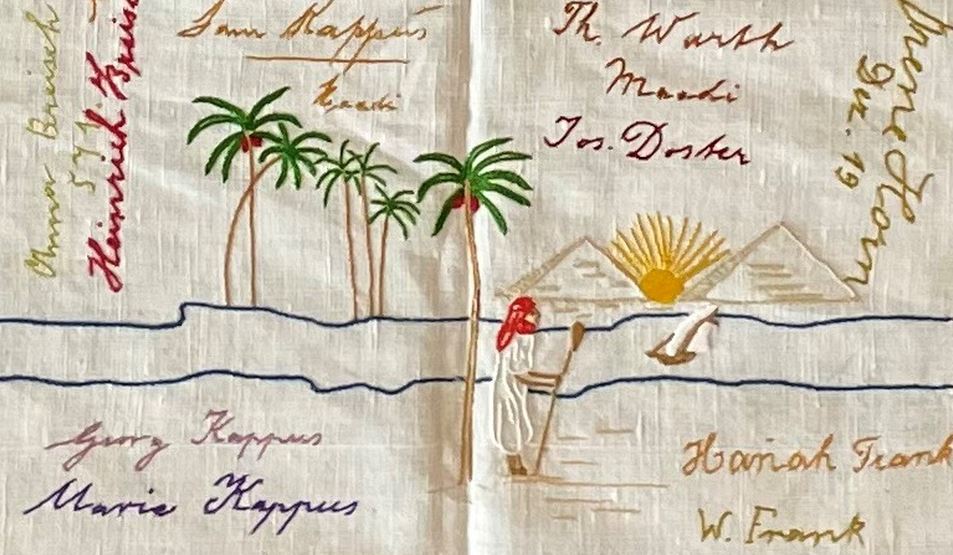 Anna Breisch
5771
Heinrich Breisch
Sam Kappus
Maadi
Th. Warth
Maadi
Jos. Doster
Irene Horn
Dez. 19
Georg Kappus
Marie Kappus
Hanah Frank
W. Frank